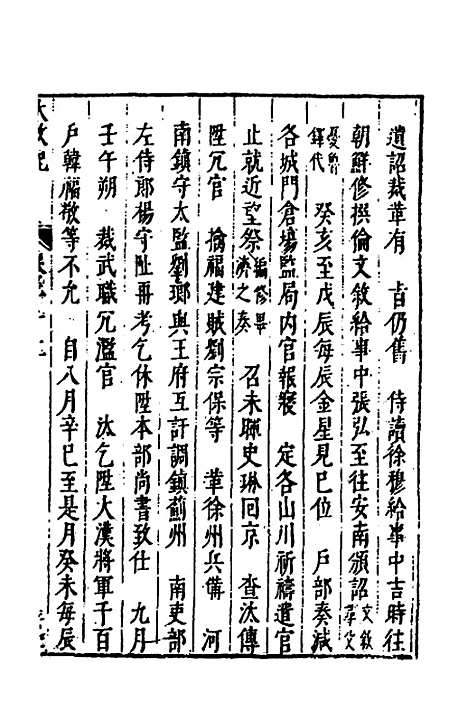 遺詔裁革有　旨仍舊　侍讀徐穆給事中吉時往
朝鮮修撰倫文敘給事中張弘至往安南頒詔文敘
癸亥至戊辰每辰金星見巳位　戶部奏減
各城門倉場監局內官報寢　定各山川祈禱遣官
止就近望祭編修畢濟之奏　召朱聰史琳回京　查汰傳
陞冗官　擒福建賊劉宗保等　革徐州兵備　河
南鎮守太監劉瑯與王府互訐調鎮薊州　南吏部
左侍郎楊守阯再考乞休陞本部尚書致仕　九月
壬午朔　裁武職冗濫官　汰乞陞大漢將軍千百
戶韓福敬等不允　自八月辛巳至是月癸未每辰
大政紀